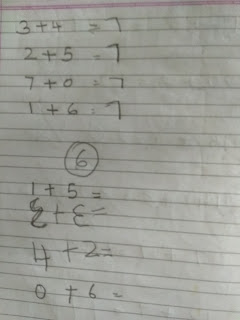 3+4 = 7
2+5 = 7
7+0 = 7
1+6 = 7
6
1+5 =
3+3 =
4+2=
0+6 =